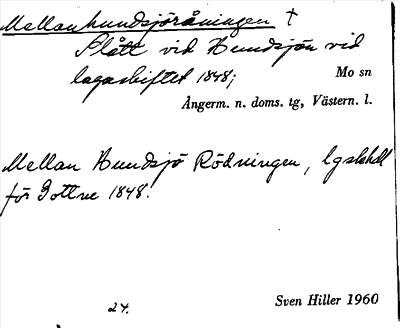 Mellanhundsjöråningen †
Slått vid Hundsjön vid
lagaskiftet 1848; Mo sn
Ångerm. n. doms. tg, Västern. l.
Mellan Hundsjö Rödningen, lgshdl
för Gottne 1848.
24. Sven Hiller 1960